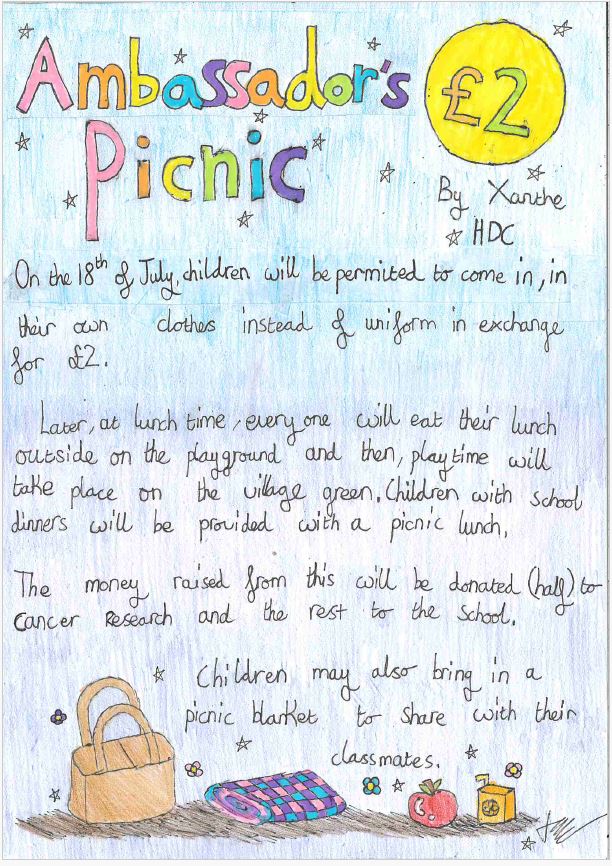 Ambassador's
£2
Picnic
By Xanthe
HDC
On the 18th of July, children will be permited to come in, in
their own clothes instead of uniform in exchange
for £2.
Later, at lunch time, every one will eat their lunch
outside on the playground and then, playtime will
take place on the village green. Children with school
dinners will be provided with a picnic lunch.
The money raised from this will be donated (half) to
Cancer Research and the rest to the school.
Children may also bring in a
picnic blanket to share with their
classmates.